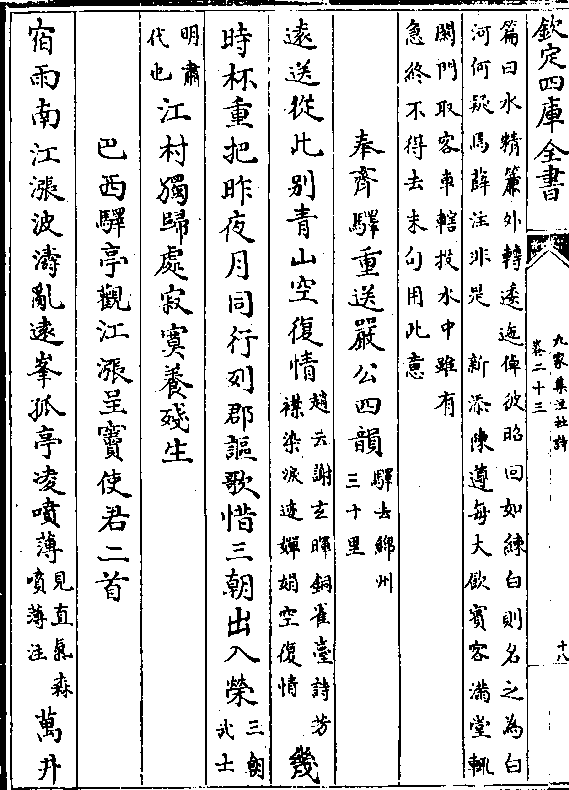 欽定四庫全書
九家集注杜詩
卷二十三
十八
篇曰水精簾外轉逶迤倬彼昭回如練白則名之為白
河何疑馬薛注非是 新添陳遵每大飲賓客滿堂輒
關門取客車轄投水中雖有
急終不得去末句用此意
奉齊驛重送嚴公四韻
驛去綿州
三十里
遠送從此别青山空復情
趙云謝玄暉銅雀臺詩芳
襟染淚迹嬋娟空復情
幾
時杯重把昨夜月同行列郡謳歌惜三朝出入榮
三朝
武士
明肅
代也
江村獨歸處寂寞養殘生
巴西驛亭觀江漲呈竇使君二首
宿雨南江漲波濤亂遠峯孤亭凌噴薄
見直氣森
噴薄注
萬井